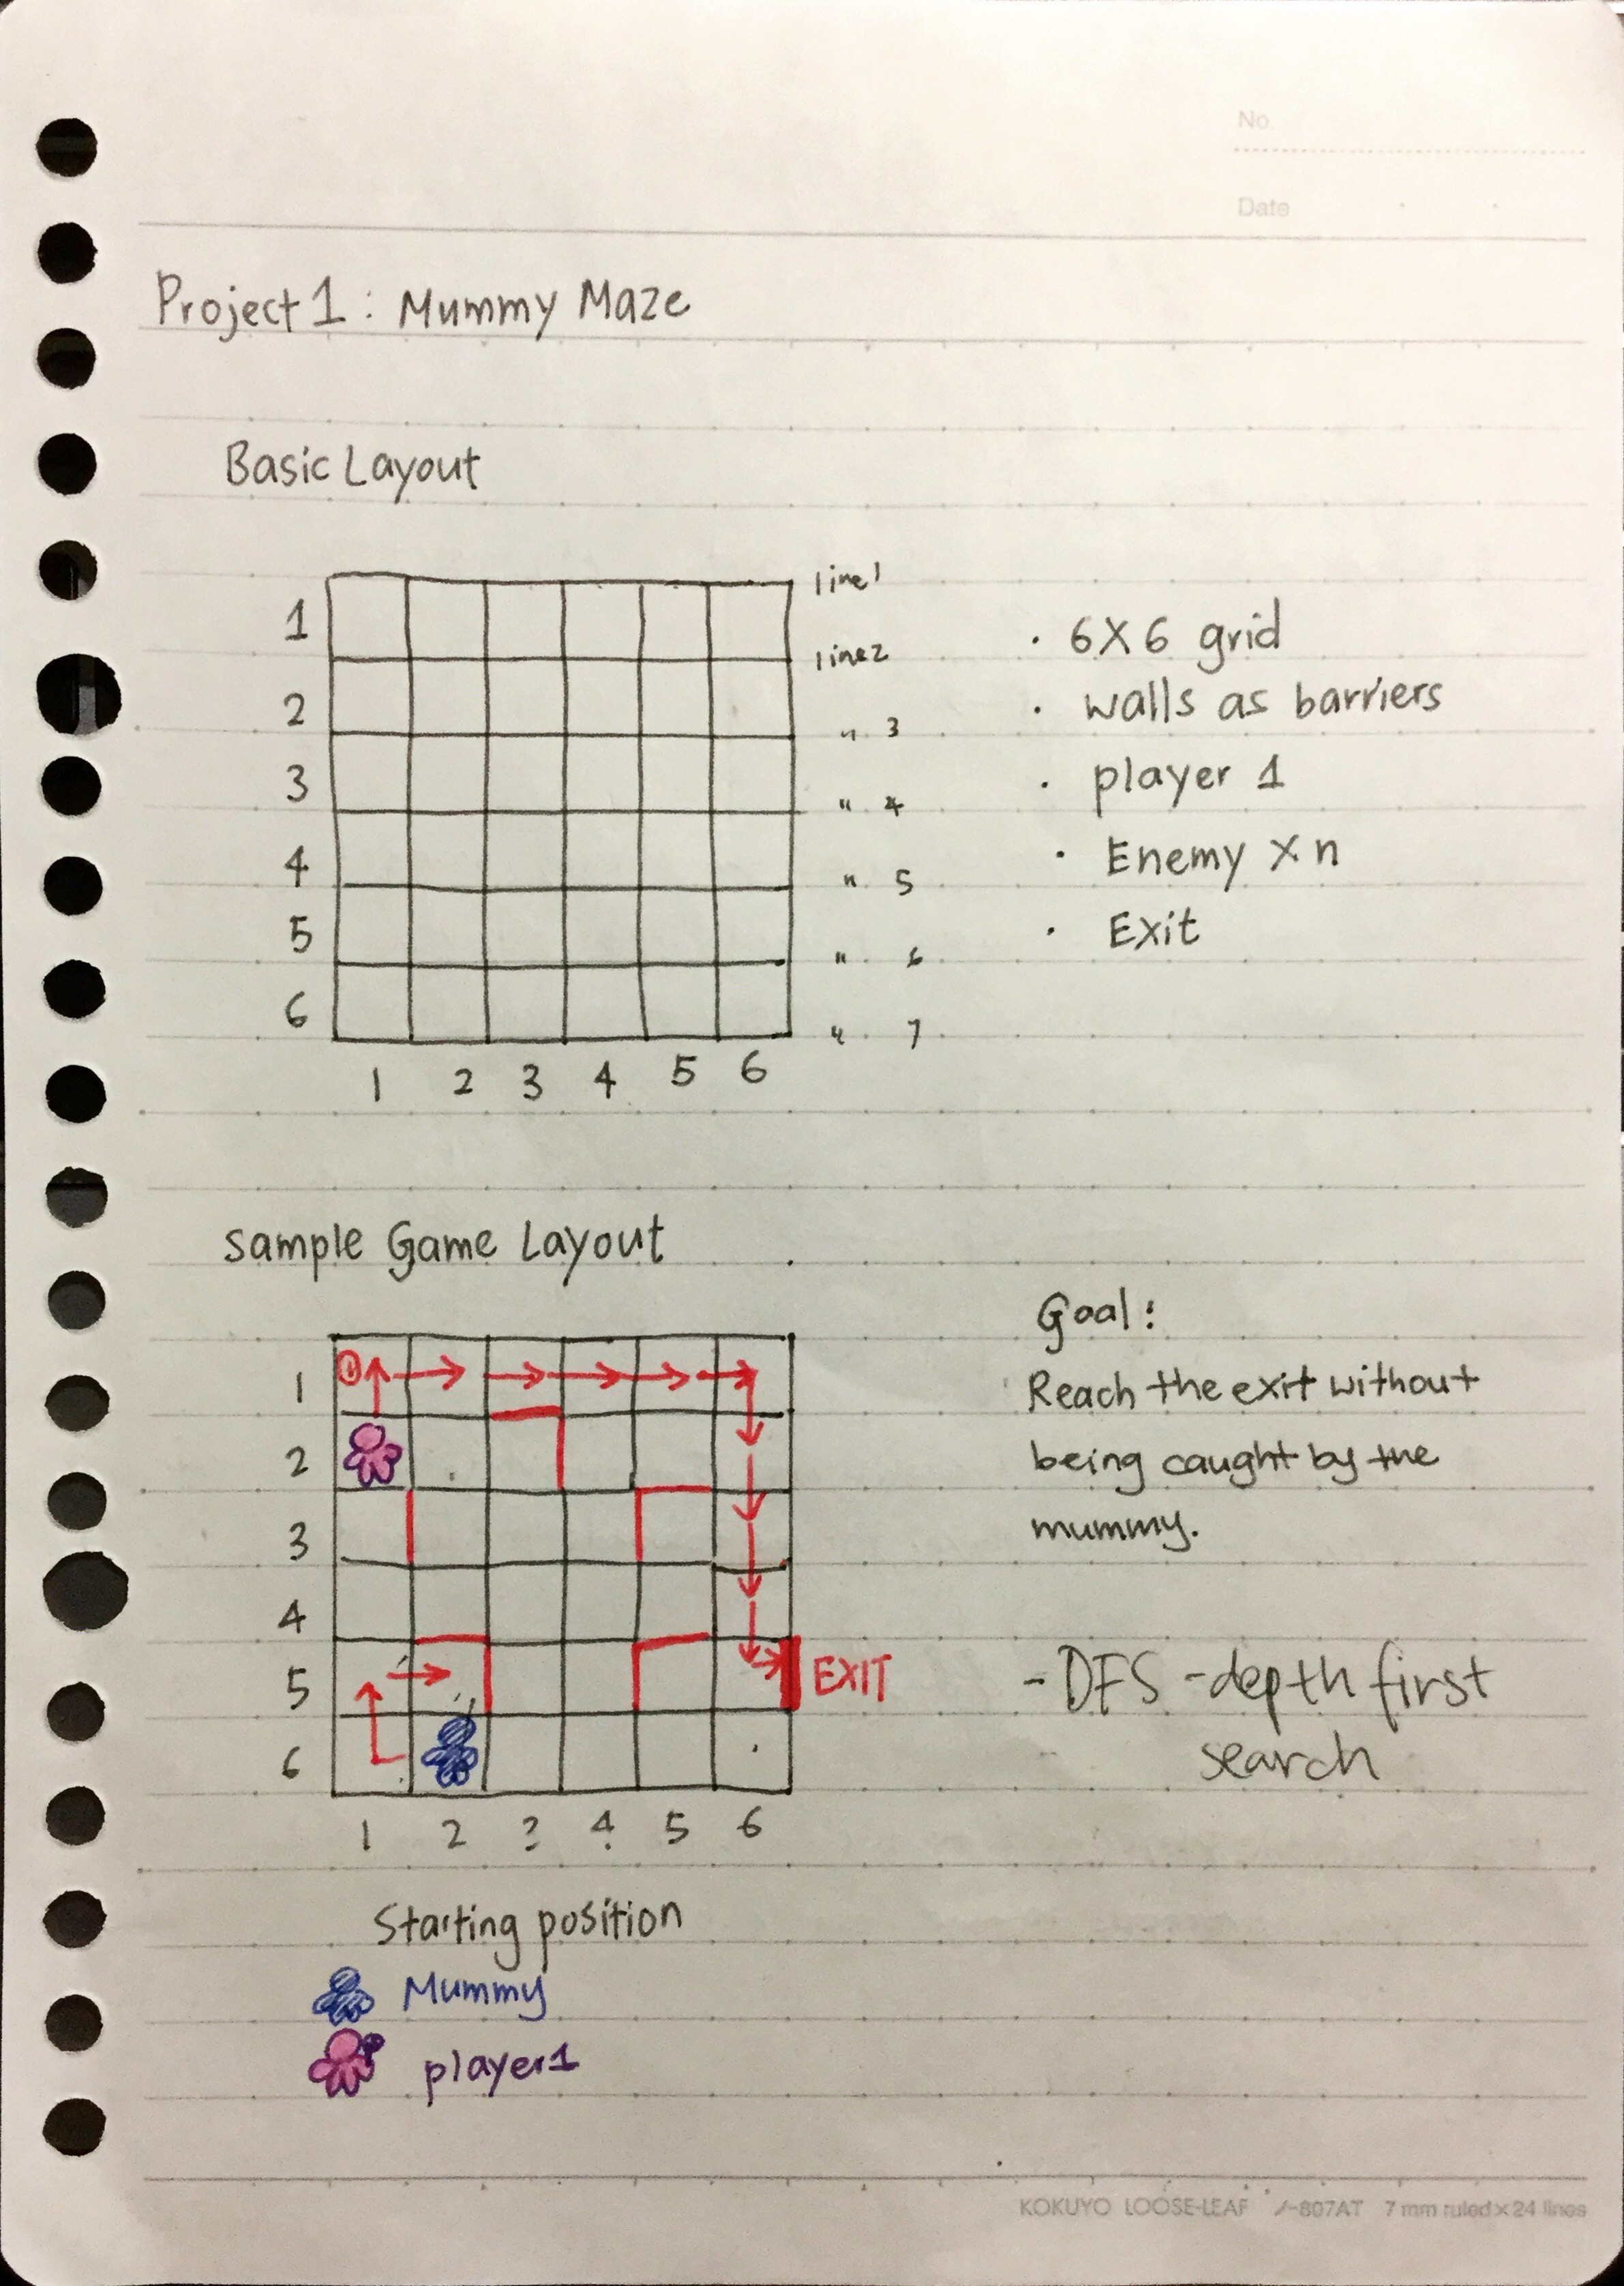 No.
Date
Project 1 : Mummy Maze
Basic Layout
line1
1
line2
2
" 3
3
" 4
4
" 5
5
" 6
6
" 7
1 2 3 4 5 6
· 6X6 grid
· walls as barriers
· player 1
· Enemy X n
· Exit
Sample Game Layout
1
1
2
3
4
5
EXIT
6
1 2 3 4 5 6
Goal :
Reach the exit without
being caught by the
mummy.
- DFS - depth first
search
Starting position
Mummy
player1
KOKUYO LOOSE-LEAF ノ-807AT 7 mm ruled×24 lines